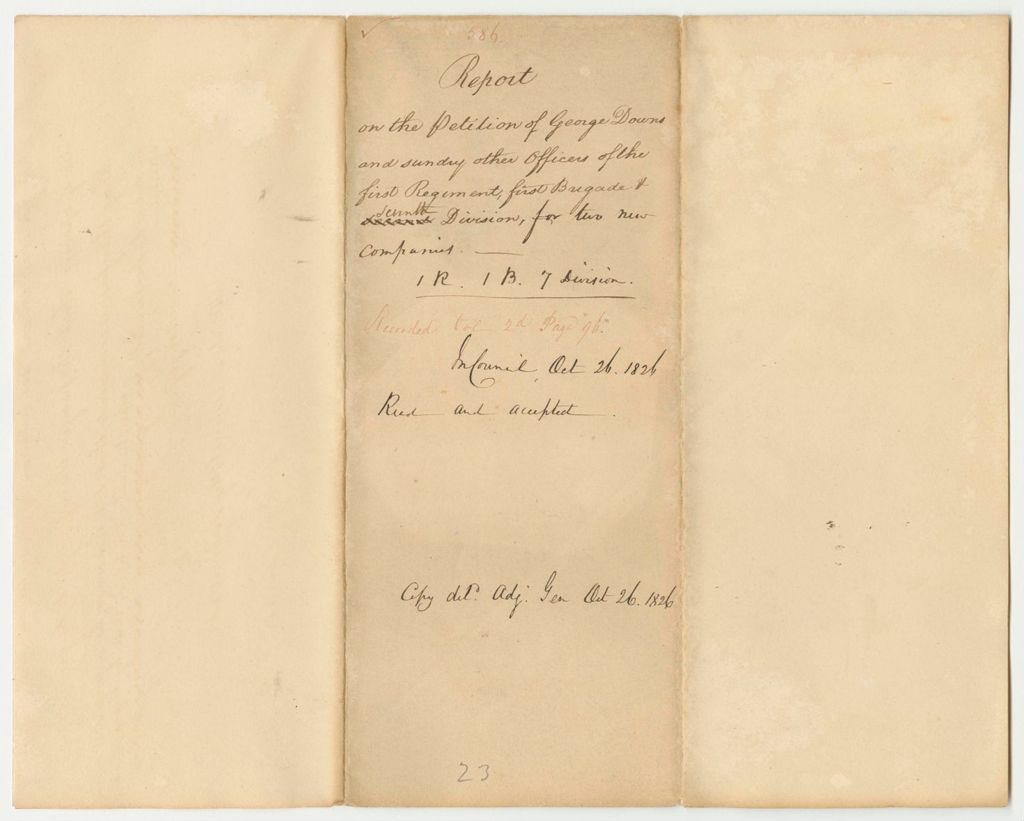 ✓ 586.
Report
on the Petition of George Downs
and sundry other Officers of the
first Regiment, first Brigade &
seventh
Division, for two new
companies. —
1 R. 1 B. 7 Division.
Recorded Vol 2d Page 96.
In Council, Oct 26. 1826
Read and accepted.
Copy deld. Adj. Gen Oct 26. 1826
23